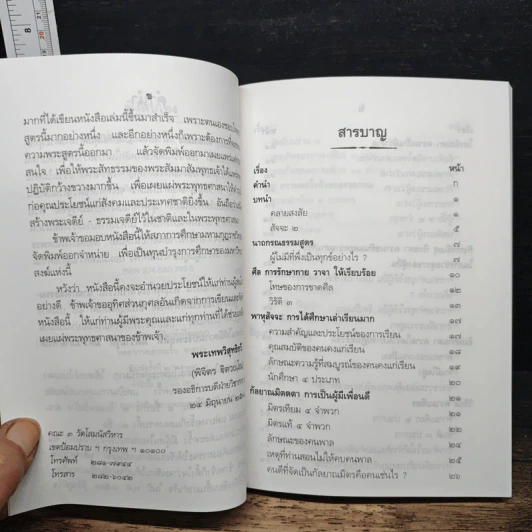 ข
มากที่ได้เขียนหนังสือเล่มนี้ขึ้นมาสำเร็จ เพราะตนเองชอบ
สูตรนี้มากอย่างหนึ่ง และอีกอย่างหนึ่งก็เพราะต้องการที่จะ
ความพระสูตรนี้ออกมา แล้วจัดพิมพ์ออกมาเผยแพร่แก่
สนใจ เพื่อให้พระสัทธรรมของพระสัมมาสัมพุทธเจ้าได้แพร่
ปฏิบัติกว้างขวางมากขึ้น เพื่อเผยแผ่พระพุทธศาสนาให้
ก่อคุณประโยชน์แก่สังคมและประเทศชาติยิ่งขึ้น อันถือว่า
สร้างพระเจดีย์ - ธรรมเจดีย์ไว้ในชาติและในพระพุทธศาสนา
ข้าพเจ้าขอมอบหนังสือนี้ให้สภาการศึกษามหามกุฏราช
จัดพิมพ์ออกจำหน่าย เพื่อเป็นทุนบำรุงการศึกษาของมหาวิท
สงฆ์แห่งนี้
หวังว่า หนังสือนี้คงจะอำนวยประโยชน์ให้แก่ท่านผู้สนใจ
อย่างดี ข้าพเจ้าขออุทิศส่วนกุศลอันเกิดจากการเขียนและจัด
หนังสือนี้ ให้แก่ท่านผู้มีพระคุณและแก่ทุกท่านที่ได้ช่วย
เผยแผ่พระพุทธศาสนาของข้าพเจ้า
พระเทพวิสุทธิ
(พิจิตร ฐิตวณฺโณ
รองอธิการบดีฝ่ายวิชาการ
๒๔ มิถุนายน
คณะ ๓ วัดโสมนัสวิหาร
เขตป้อมปราบ ฯ กรุงเทพ ฯ ๑๐๑๐๐
โทรศัพท์
โทรสาร
สารบาญ
เรื่อง หน้า
คำนำ ก
บทนำ ๑
คลายสงสัย ๑
สัจจะ ๒ ๕
นาถกรณธรรมสูตร ๗
ผู้ไม่มีที่พึ่งเป็นทุกข์อย่างไร ? ๗
ศีล การรักษากาย วาจา ให้เรียบร้อย ๑๐
โทษของการขาดศีล ๑๒
วิรัติ ๓ ๑๓
พาหุสัจจะ การได้ศึกษาเล่าเรียนมาก ๑๗
ความสำคัญและประโยชน์ของการเรียน ๑๗
คุณสมบัติของคนคงแก่เรียน ๑๘
ลักษณะความรู้ที่สมบูรณ์ของคนคงแก่เรียน ๑๙
นักศึกษา ๔ ประเภท ๒๐
กัลยาณมิตตตา การเป็นผู้มีเพื่อนดี ๒๑
มิตรเทียม ๔ จำพวก ๒๒
มิตรแท้ ๔ จำพวก ๒๒
ลักษณะของคนพาล ๒๔
เหตุที่ท่านสอนไม่ให้คบคนพาล ๒๕
คนดีที่จัดเป็นกัลยาณมิตรคือคนเช่นไร ? ๒๖